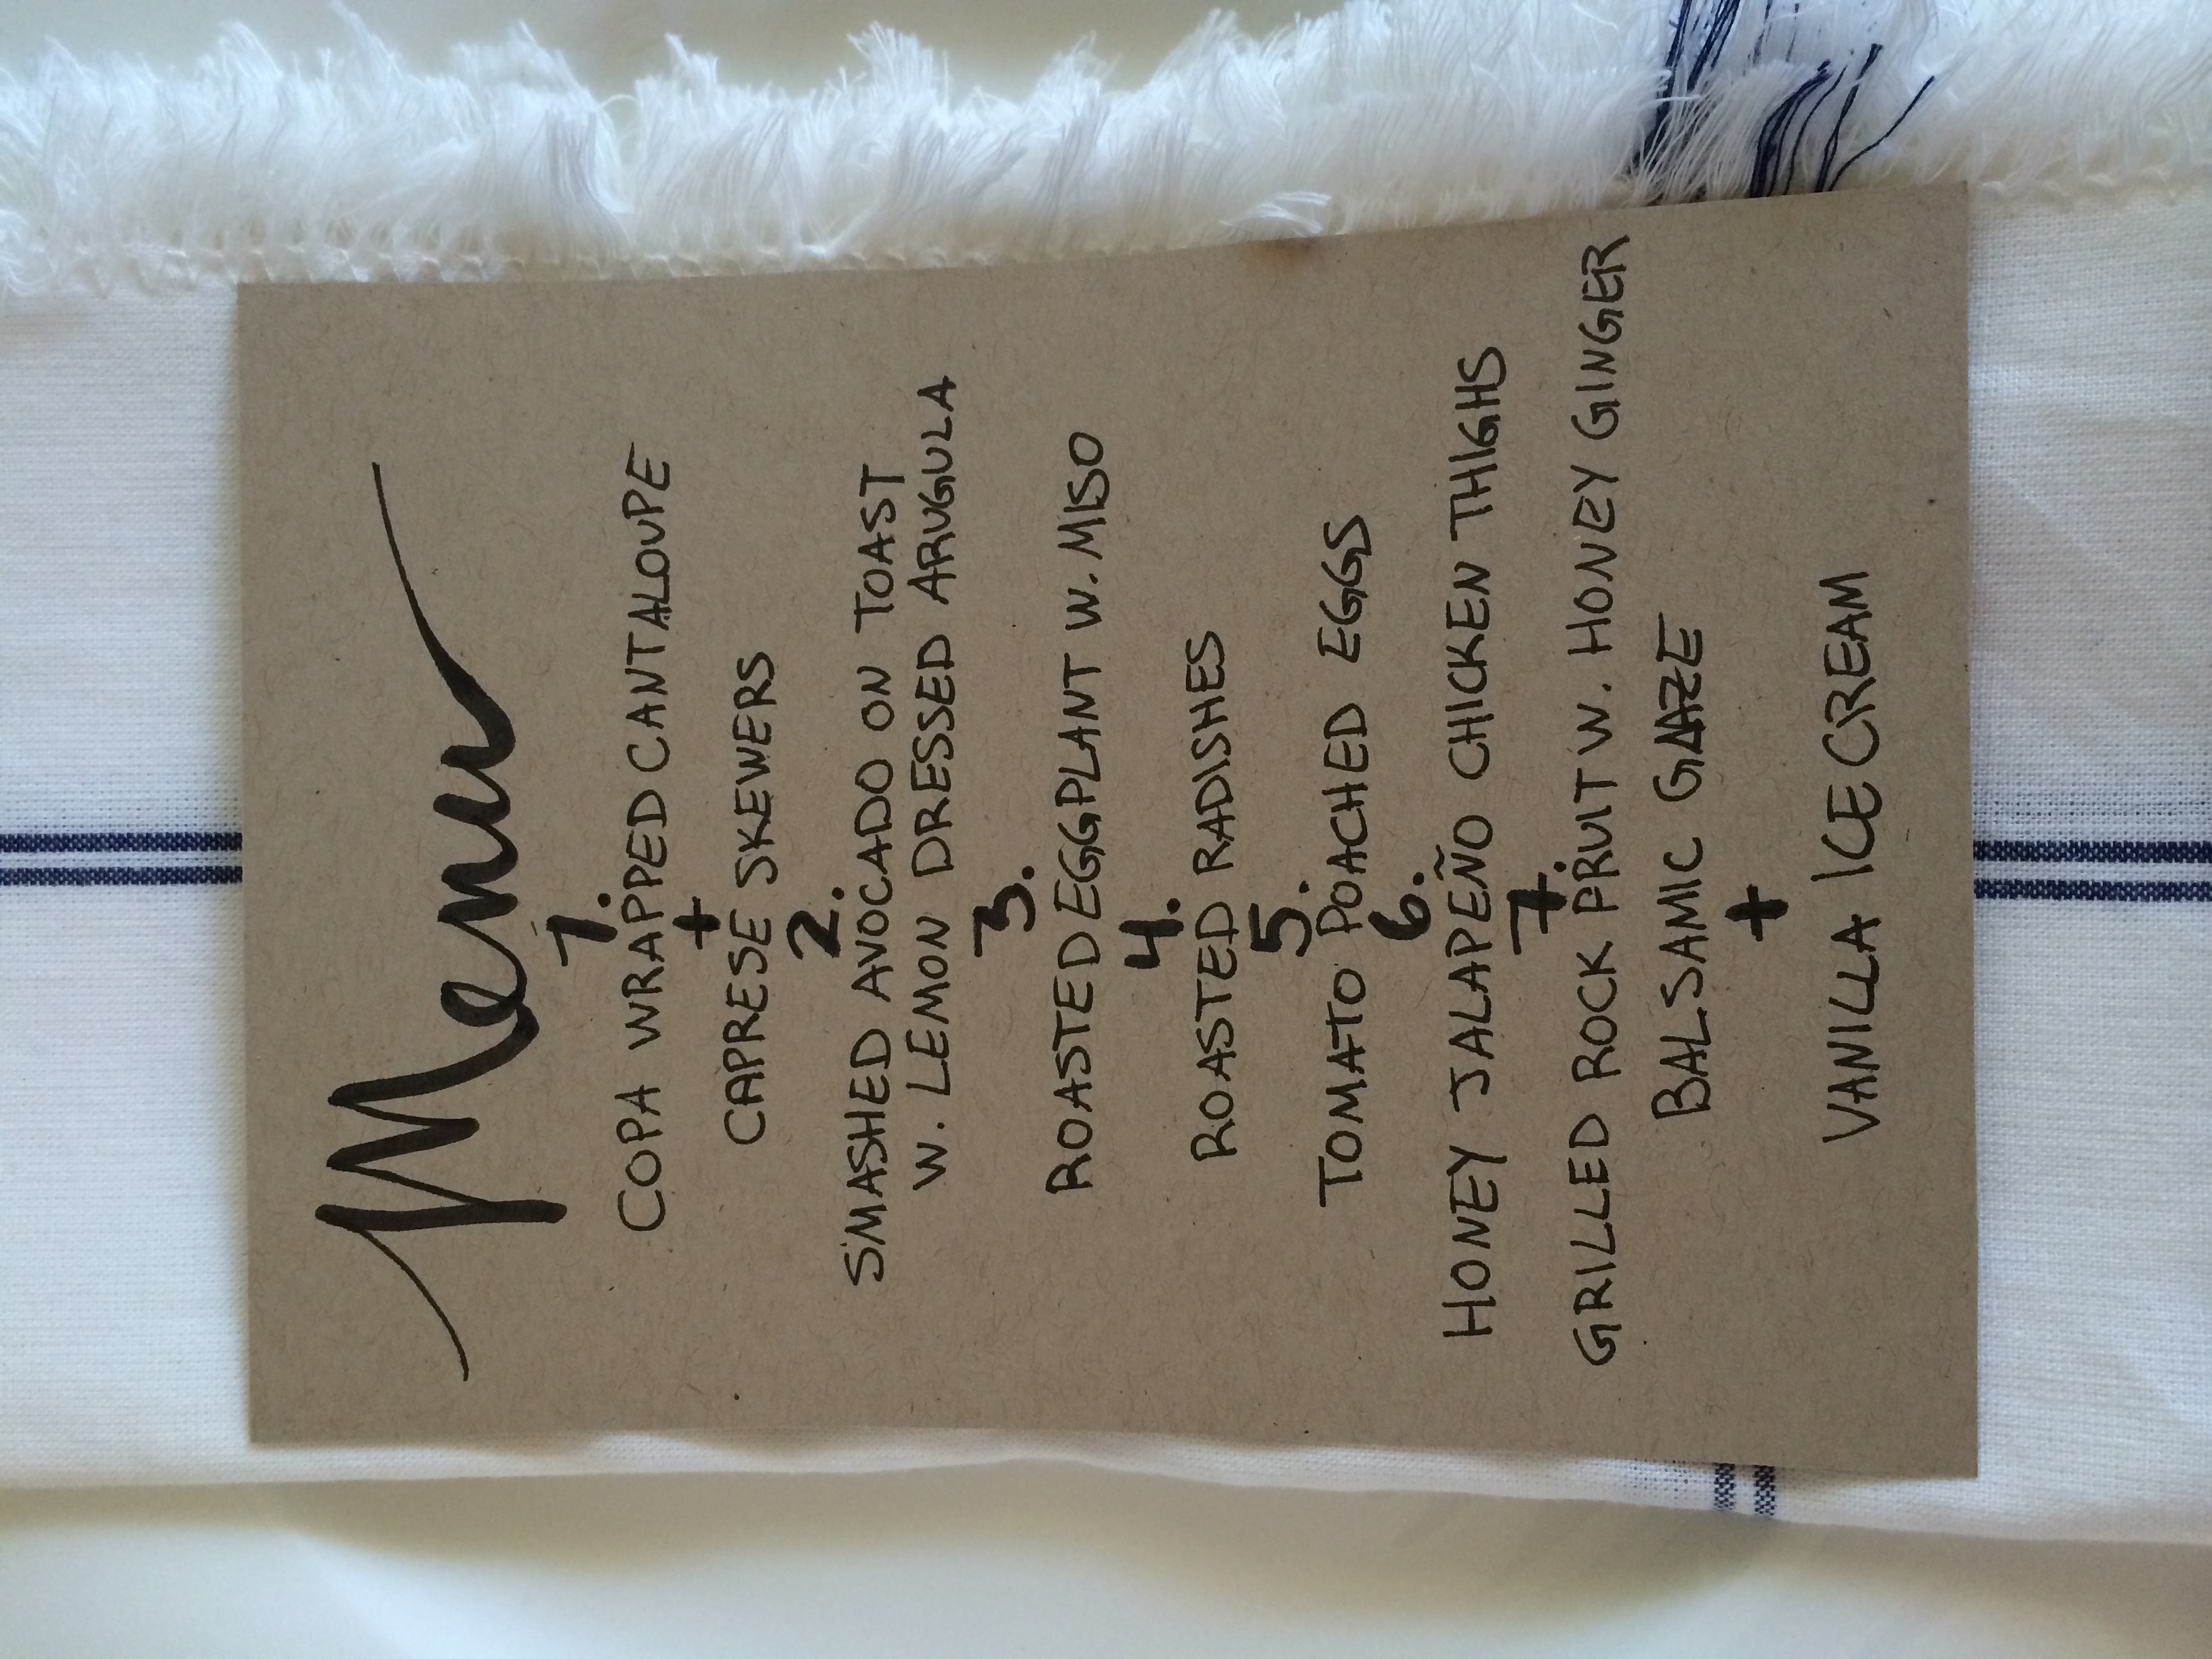 Menu
1.
COPA WRAPPED CANTALOUPE
+
CAPRESE SKEWERS
2.
SMASHED AVOCADO ON TOAST
W. LEMON DRESSED ARUGULA
3.
ROASTED EGGPLANT W. MISO
4.
ROASTED RADISHES
5.
TOMATO POACHED EGGS
6.
HONEY JALAPEÑO CHICKEN THIGHS
7.
GRILLED ROCK FRUIT W. HONEY GINGER
BALSAMIC GAZE
+
VANILLA ICE CREAM